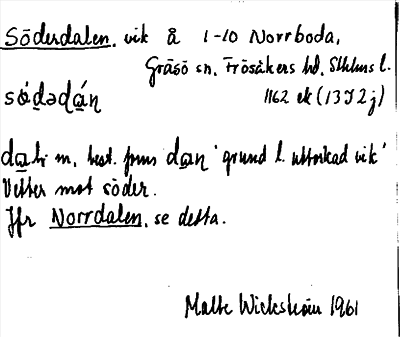 Söderdalen, vik Å 1-10 Norrboda,
Gräsö sn, Frösåkers hd, Sthlms l.
sǿdədán 1162 ek (13I2j)
dal m, best. form dan 'grund l. uttorkad vik'
Vetter mot söder.
Jfr Norrdalen, se detta.
Malte Wickström 1961